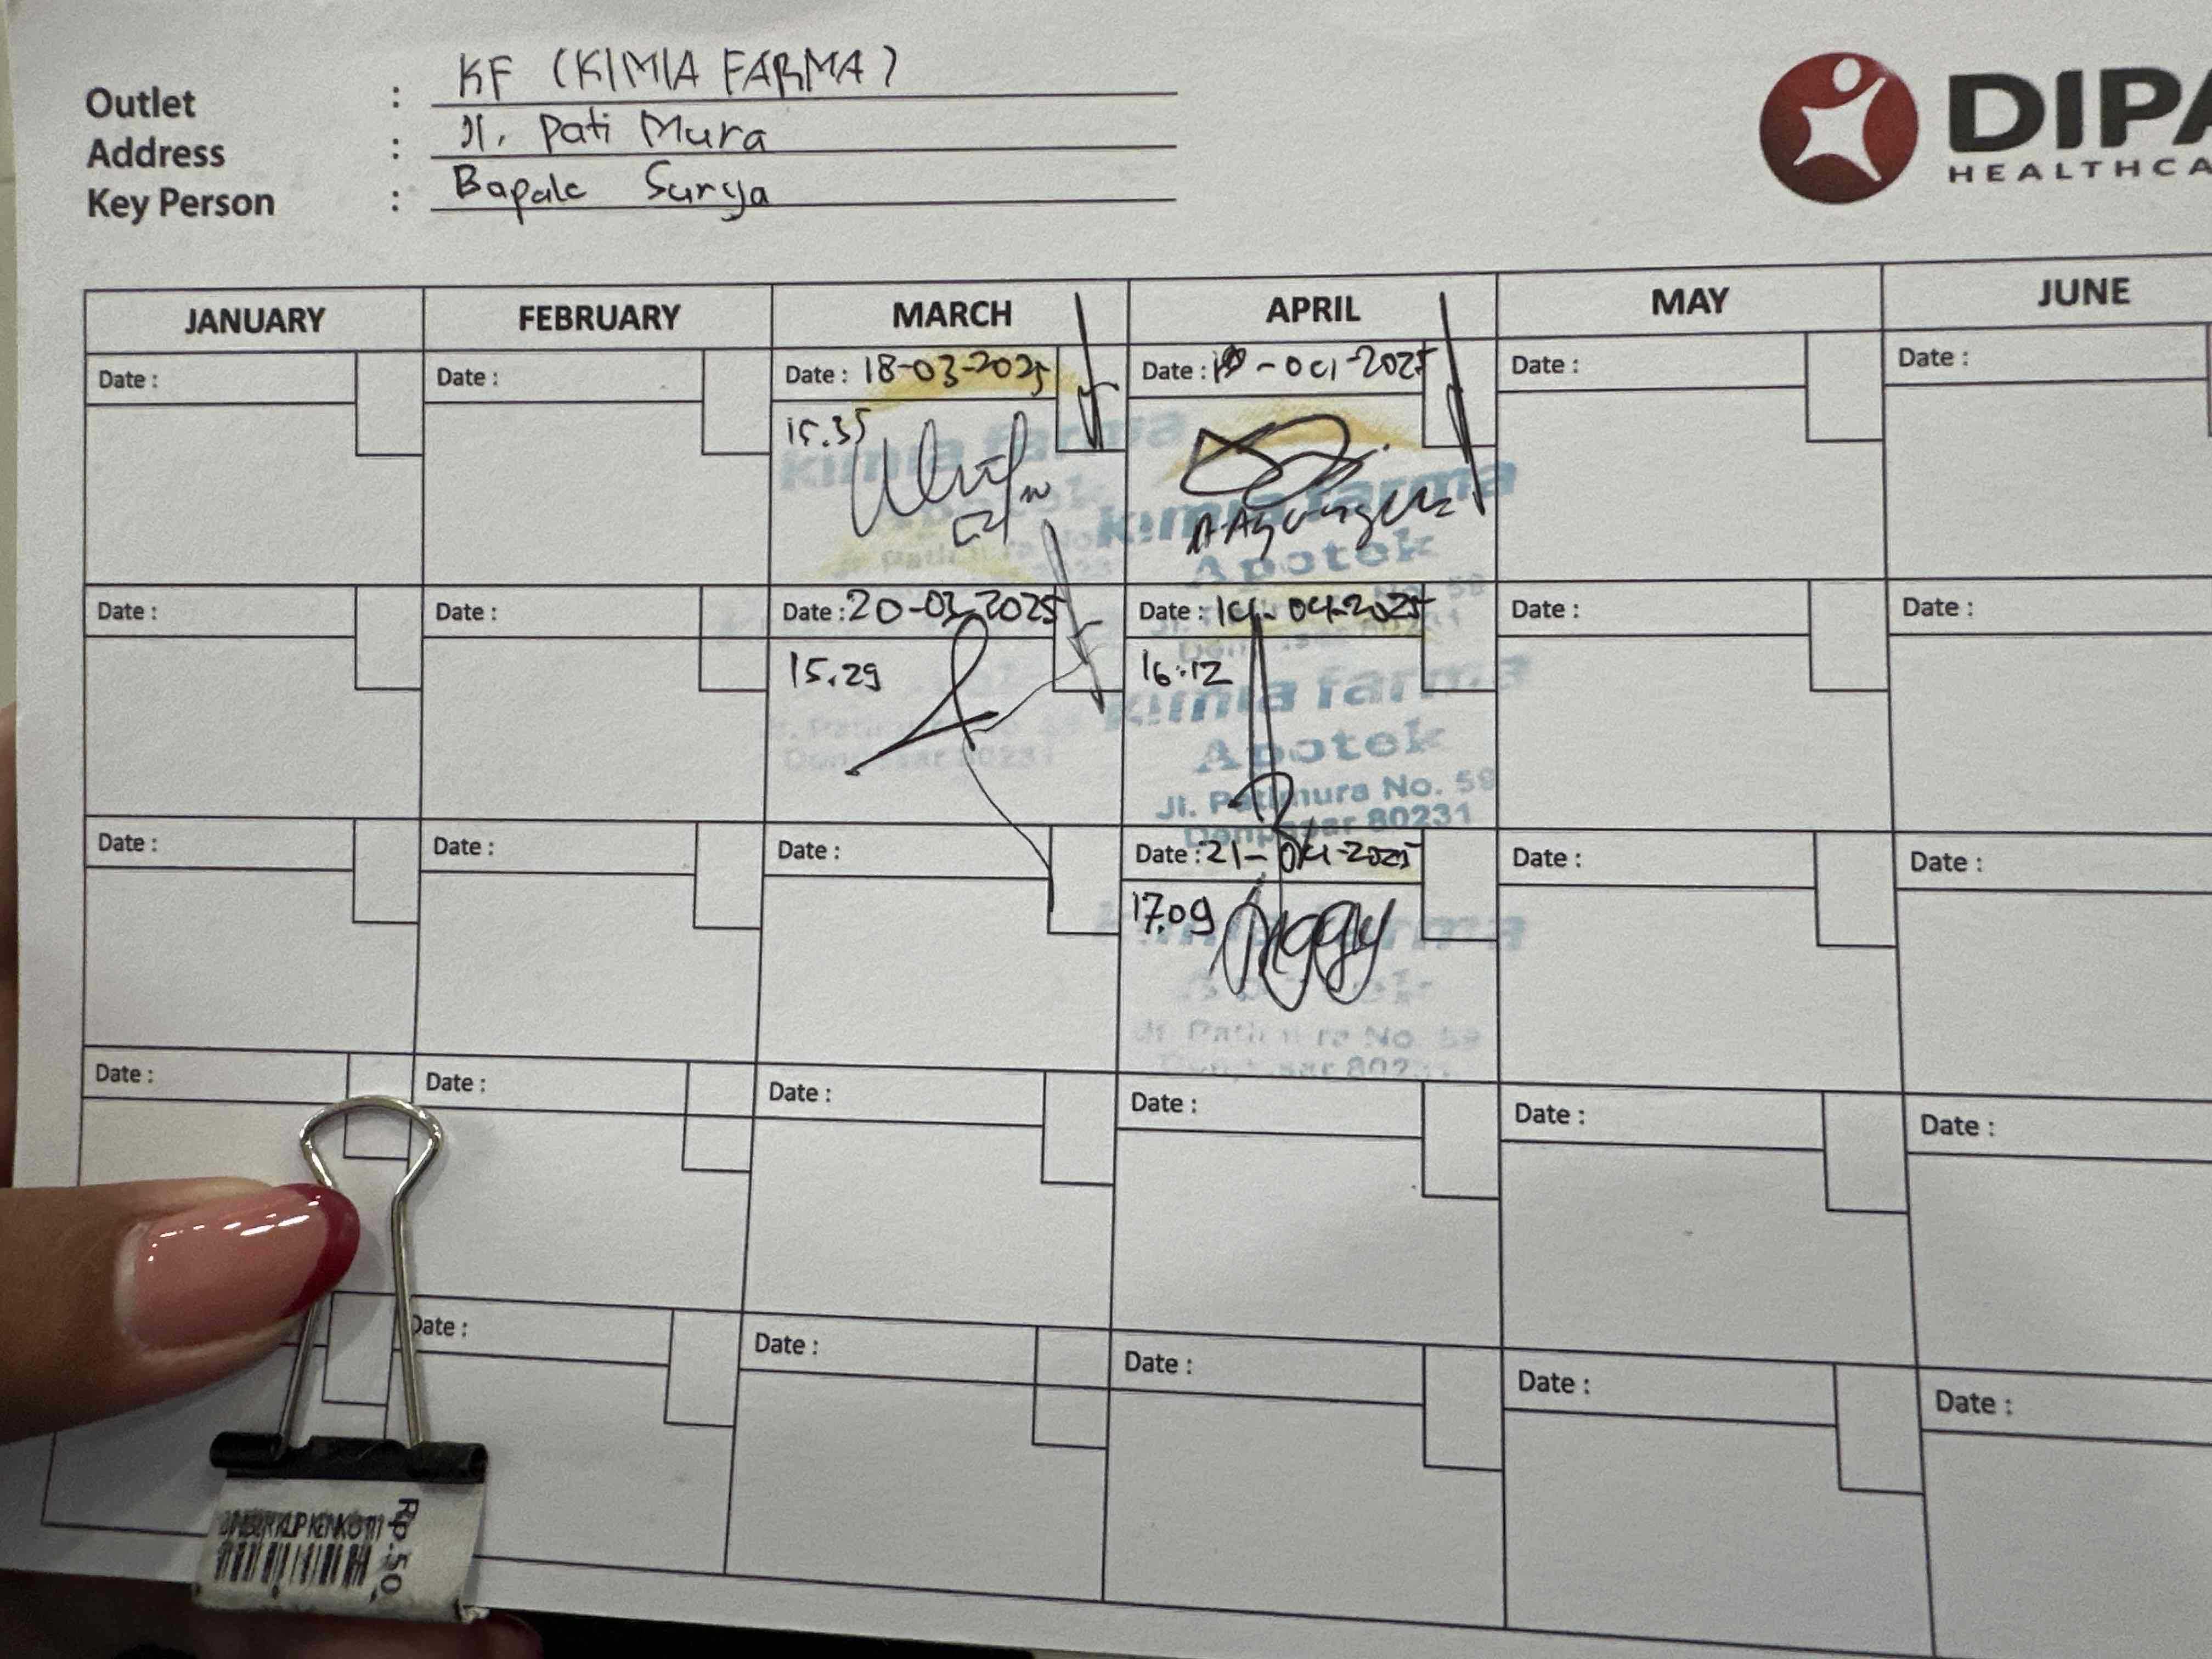 Outlet : KF (KIMIA FARMA)
Address : Jl. Pati Mura
Key Person : Bapak Surya
DIPA
HEALTHCA
JANUARY FEBRUARY MARCH APRIL MAY JUNE
Date : Date : Date : 18-03-2025 Date : -04-2025 Date : Date :
15.35
kimia farma
kimia farma
Apotek
Date : Date : Date : 20-03-2025 Date : 14-04-2025 Date : Date :
15.29 16:12
kimia farma
Apotek
Jl. Patimura No. 59
Denpasar 80231
Date : Date : Date : Date : 21-04-2025 Date : Date :
17.09
Date : Date : Date : Date : Date : Date :
Date : Date : Date : Date : Date :
Rp.50